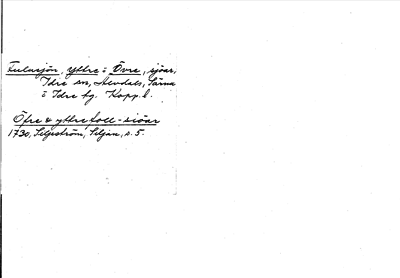 Fulusjön, Yttre o Övre, sjöar,
Idre sn, Älvdals, Särna
o Idre tg. Kopp. l.
Öfre & yttre foll-siöar
1730, Seljeström, Seljan, s. 5.